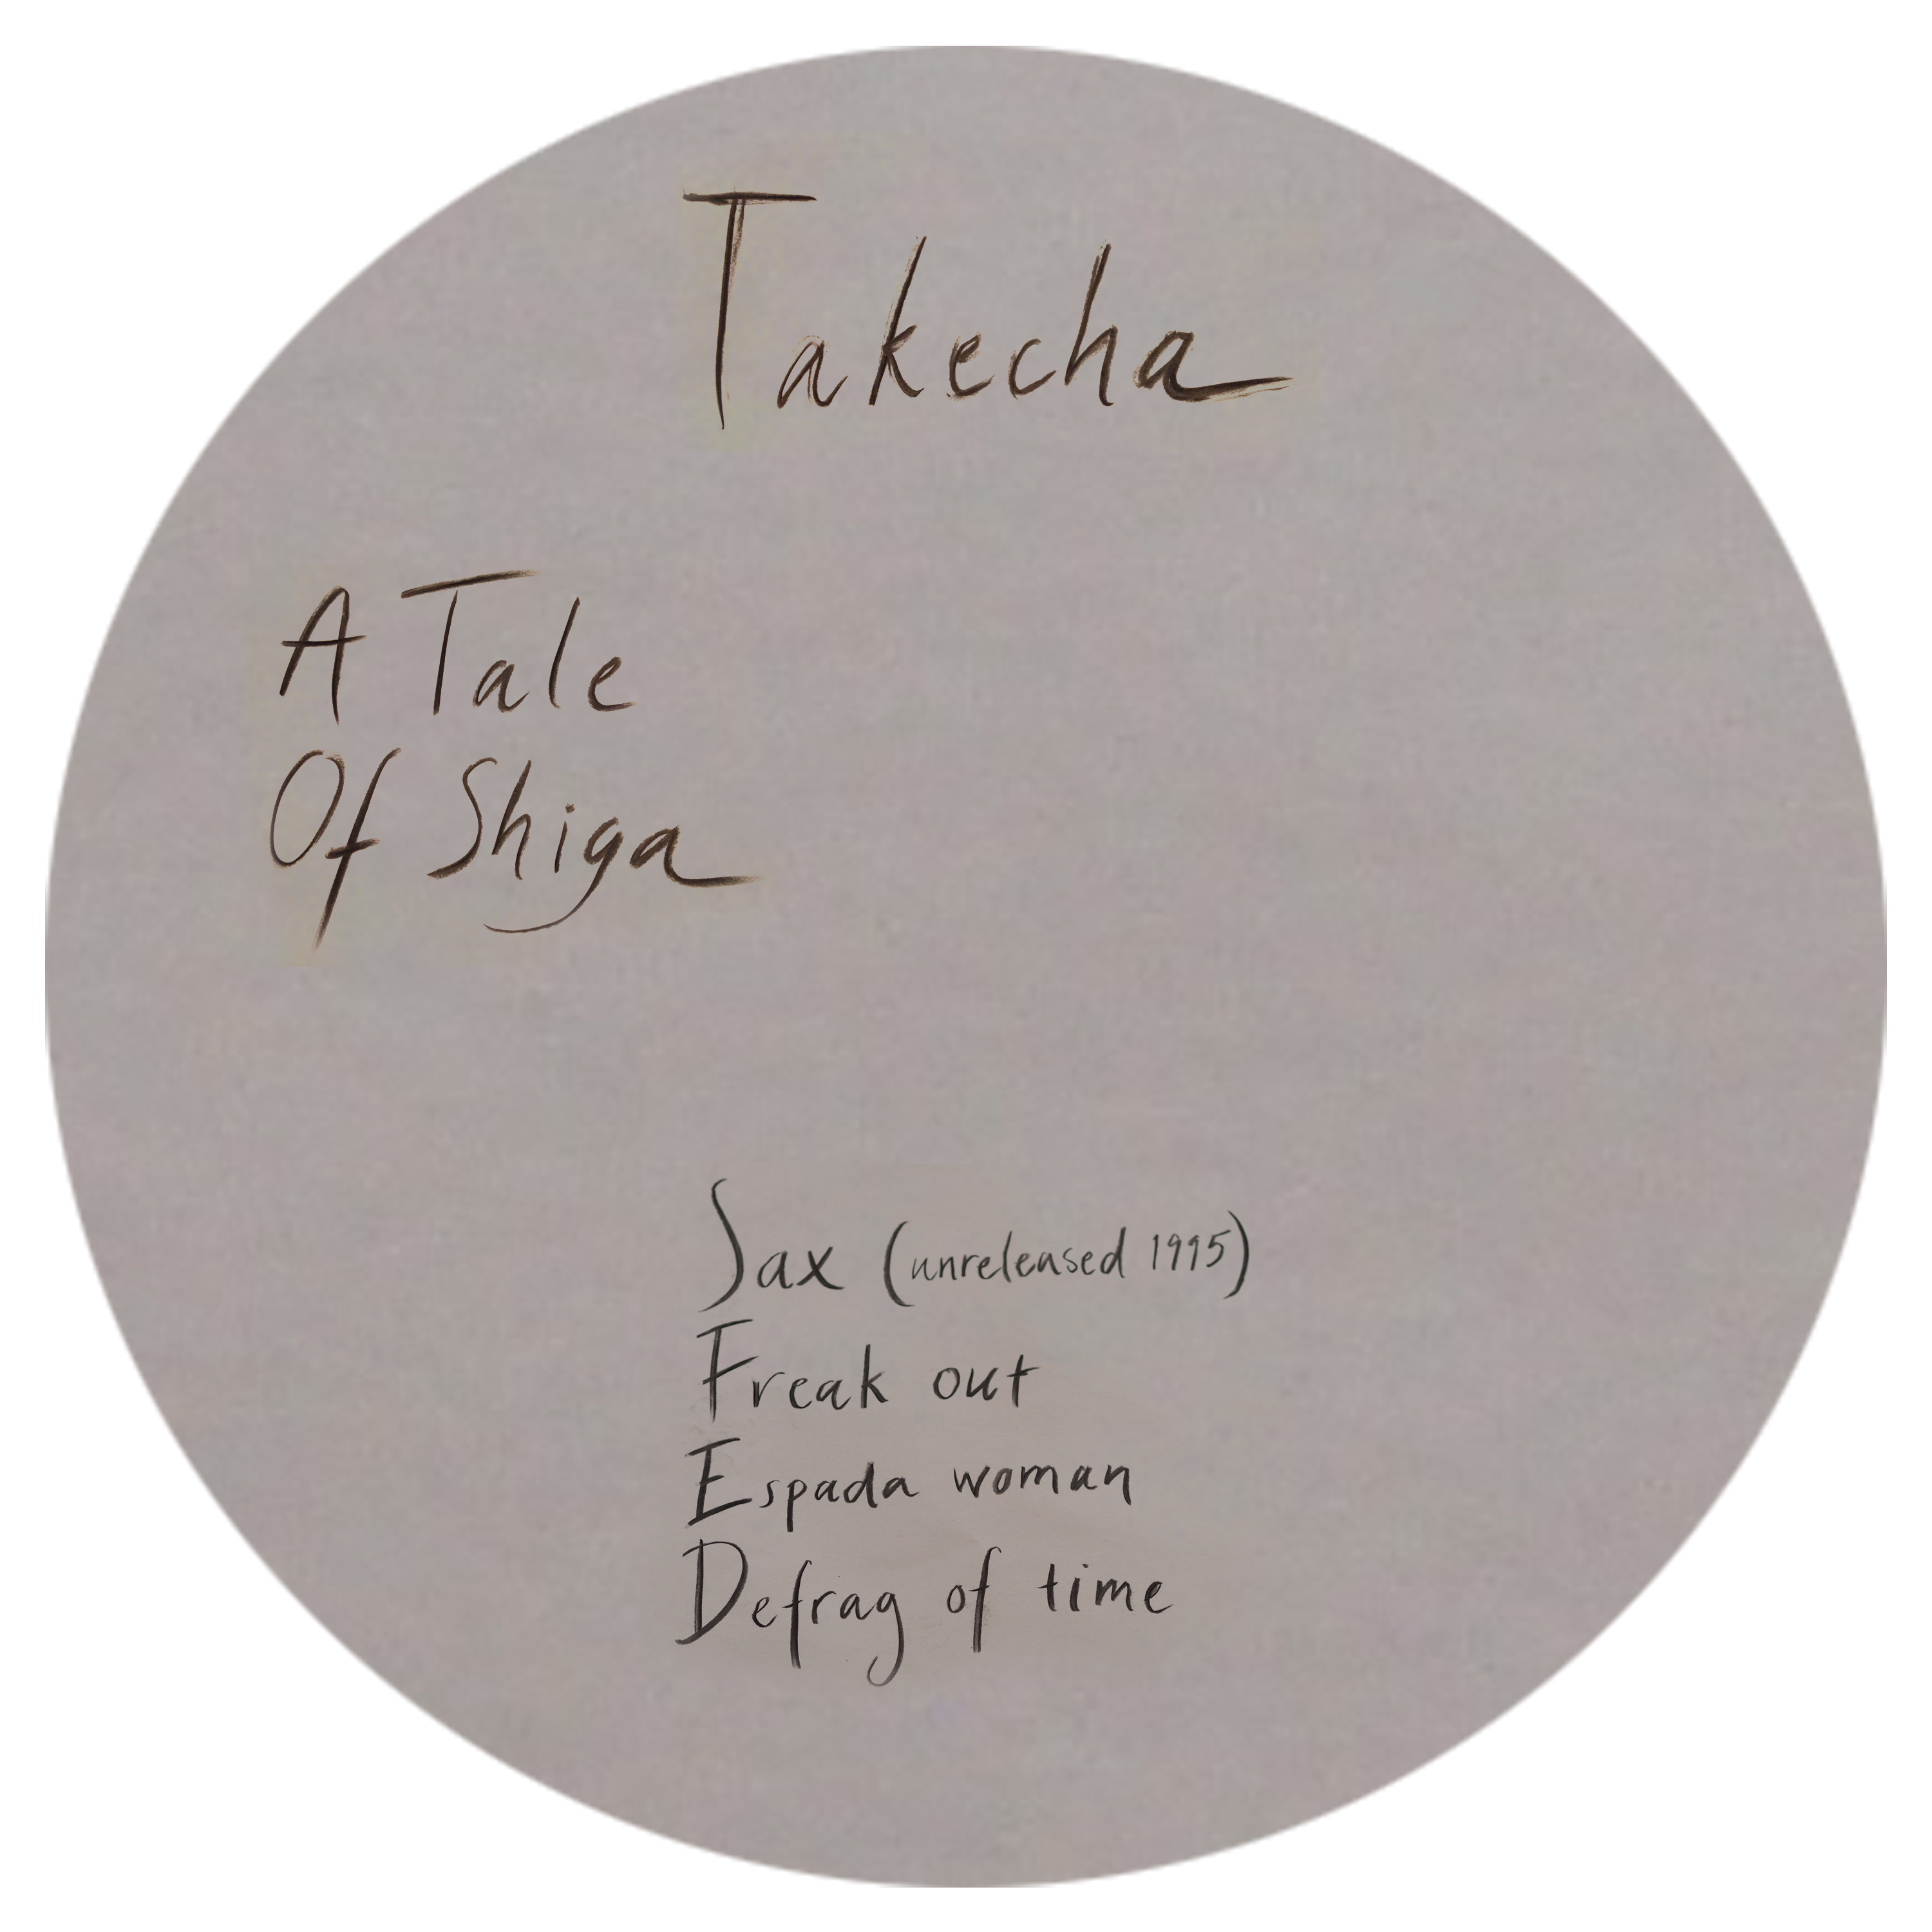 Takecha
A Tale
Of Shiga
Sax (unreleased 1995)
Freak out
Espada woman
Defrag of time